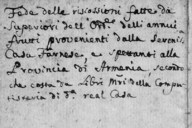 Fede delle riscossioni fatte da
Superiori dell'Ord.e dell'annui
frutti provenienti dalla Seren.
Casa Farnese e spettanti alla
Provincia d'Armenia, secondo
che costa da Libri Mri della Compu
tisteria di d.a real Casa